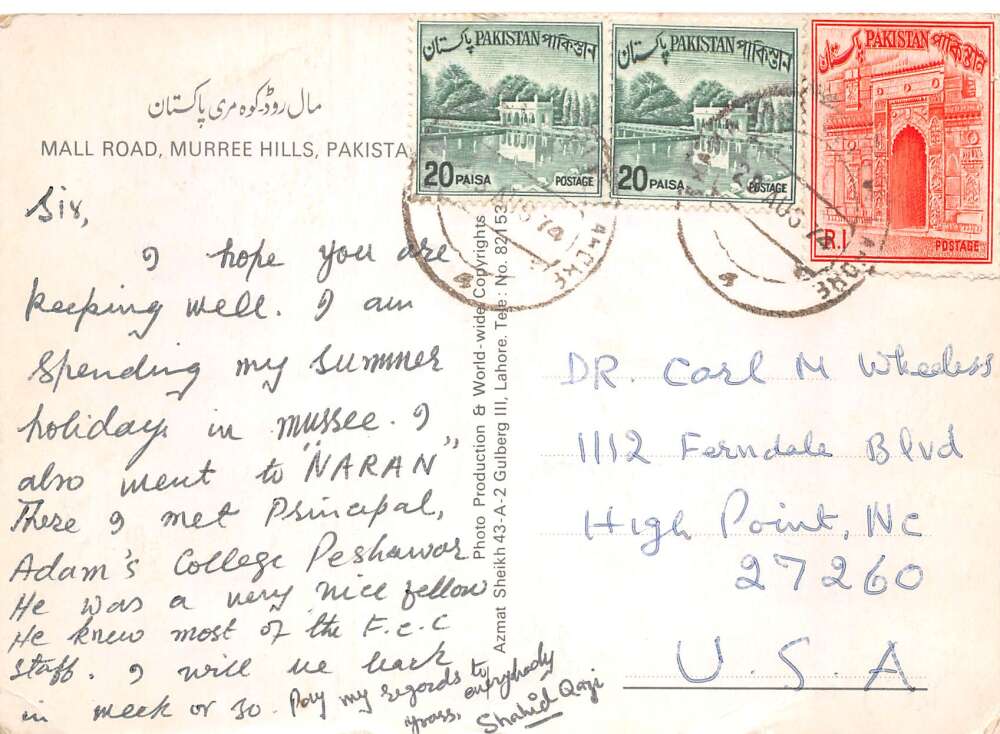 مال روڈ-کوہ مری پاکستان
MALL ROAD, MURREE HILLS, PAKISTA
Sir,
I hope you are
keeping well. I am
spending my summer
holidays in murree. I
also went to "NARAN",
There I met Principal,
Adam's College Peshawar
He was a very nice fellow
He knew most of the F.C.C
staff. I will be back
in week or so. Pay my regards to
everybody
yours,
Shahid Qazi
Photo Production & World-wide Copyrights
Azmat Sheikh 43-A-2 Gulberg III, Lahore. Tele: No. 82153
پاکستان PAKISTAN পাকিস্তান
20 PAISA POSTAGE
پاکستان PAKISTAN পাকিস্তান
20 PAISA POSTAGE
پاکستان PAKISTAN পাকিস্তান
R.1 POSTAGE
74
LAHORE
AUG 74
LAHORE
DR. Carl M Wheeless
1112 Ferndale Blvd
High Point, NC
27260
U.S.A